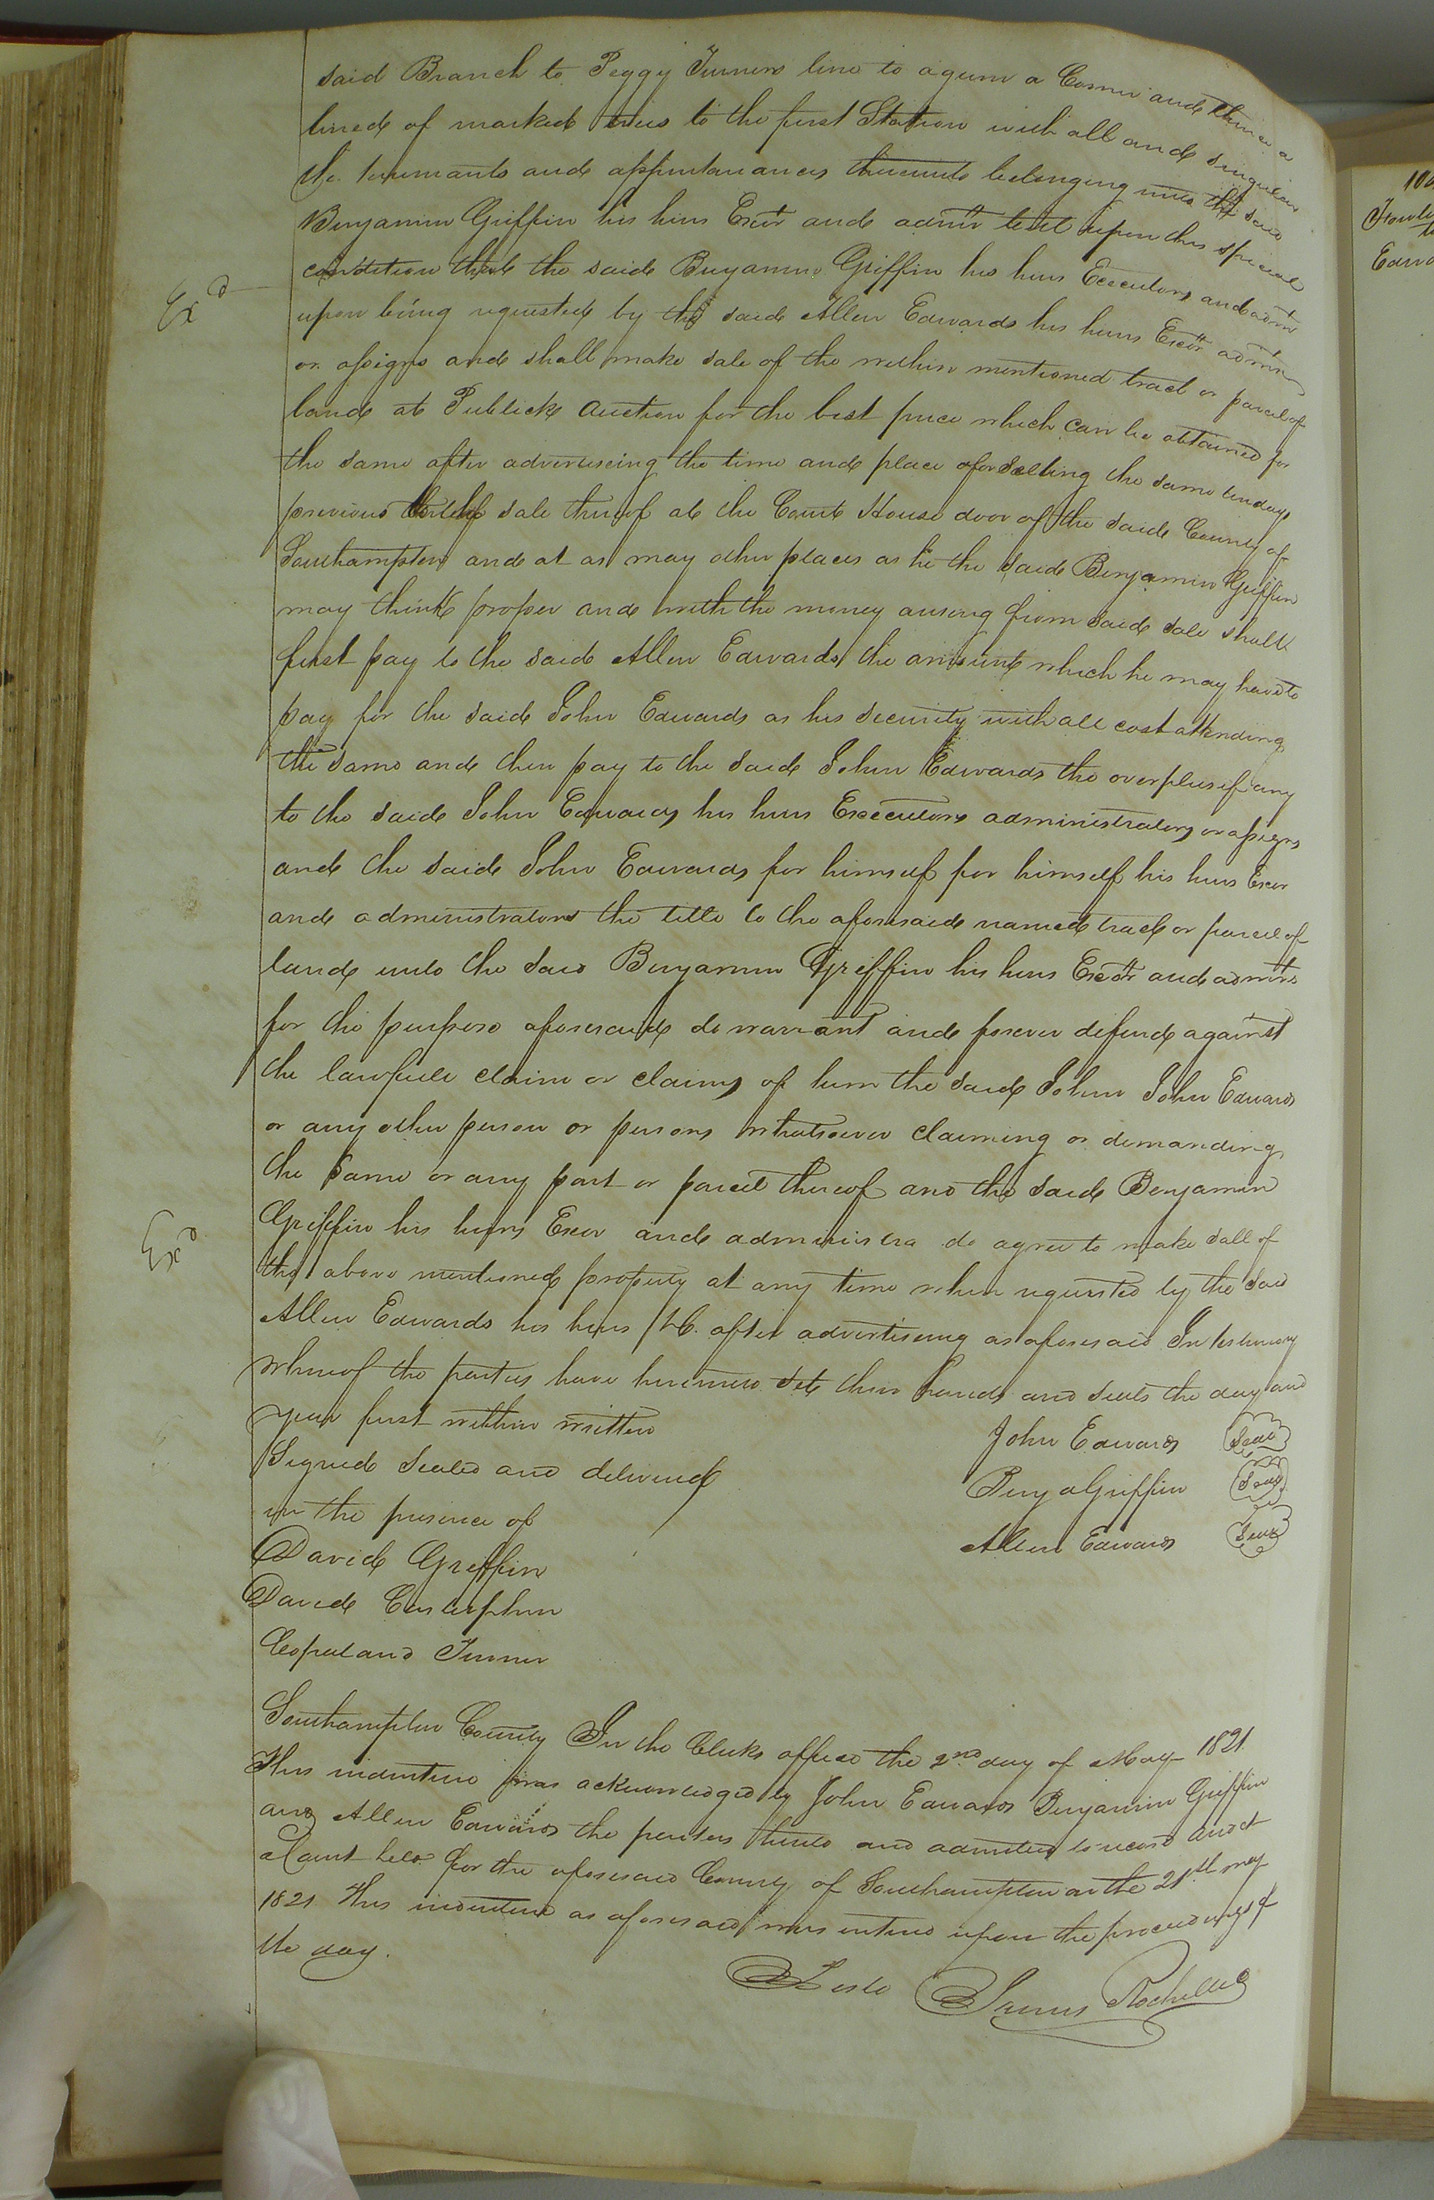 said Branch to Peggy Turners line to a gum a Corner and thence a
lined of marked trees to the first Station with all and singular
the tenements and appurtanances thereunto belonging unto the said
Benjamin Griffin his heirs Exctr and admtr but upon this special
Exd
condition that the said Benjamin Griffin his heirs Executors and admr
upon being requested by the said Allen Edwards his heirs Exctr admrs
or assigns and shall make sale of the within mentioned tract or parcel of
land at Publick Auction for the best price which can be obtained for
the same after adverteseing the time and place of or selling the same ten days
previous to the sale thereof at the Court House door of the said County of
Southampton and at as may other places as he the said Benjamin Griffin
may think proper and with the money arising from said sale shall
first pay to the said Allen Edwards the amount which he may have to
pay for the said John Edwards as his security with all cost attending
the same and then pay to the said John Edwards the overplus if any
to the said John Edwards his heirs Executors administrators or assigns
and the said John Edwards for himself for himself his heirs Exor
and administrators the title to the aforesaid named tract or parcel of
land unto the said Benjamin Griffin his heirs Exctr and admrs
for the purpose aforesaid do warrant and forever defend against
the lawfull claim or claims of him the said John John Edwards
or any other person or persons whatsoever claiming or demanding
the same or any part or parcel thereof and the said Benjamin
Exd
Griffin his heirs Exor and administra do agree to make sall of
the above mentioned property at any time when requested by the said
Allen Edwards his heirs &C. after advertiseing as aforesaid In testimony
whereof the parties have hereunto set their hands and seals the day and
year first within written
John Edwards Seal
Signed sealed and delivered
Benja Griffin Seal
in the presence of
Allen Edwards Seal
David Griffin
David
Copeland Turner
Southampton County In the Clerks office the 2nd day of May 1821
This indenture was acknowledged by John Edwards Benjamin Griffin
and Allen Edwards the parties thereto and admitted to record and at
a Court held for the aforesaid County of Southampton on the 21th may
1821 This indenture as aforesaid was entered upon the proceedings of
the day.
Teste James Rochelle